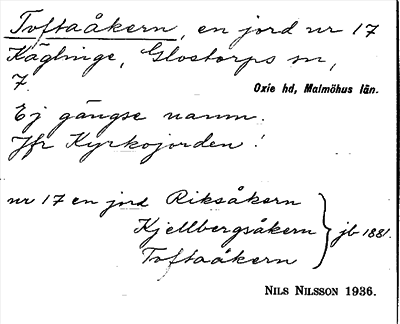 Toftaåkern, en jord nr 17
Käglinge, Glostorps sn,
7.
Oxie hd, Malmöhus län.
Ej gängse namn.
Jfr Kyrkojorden!
nr 17 en jord Riksåkern
Kjellbergsåkern } jb 1881.
Toftaåkern
NILS NILSSON 1936.